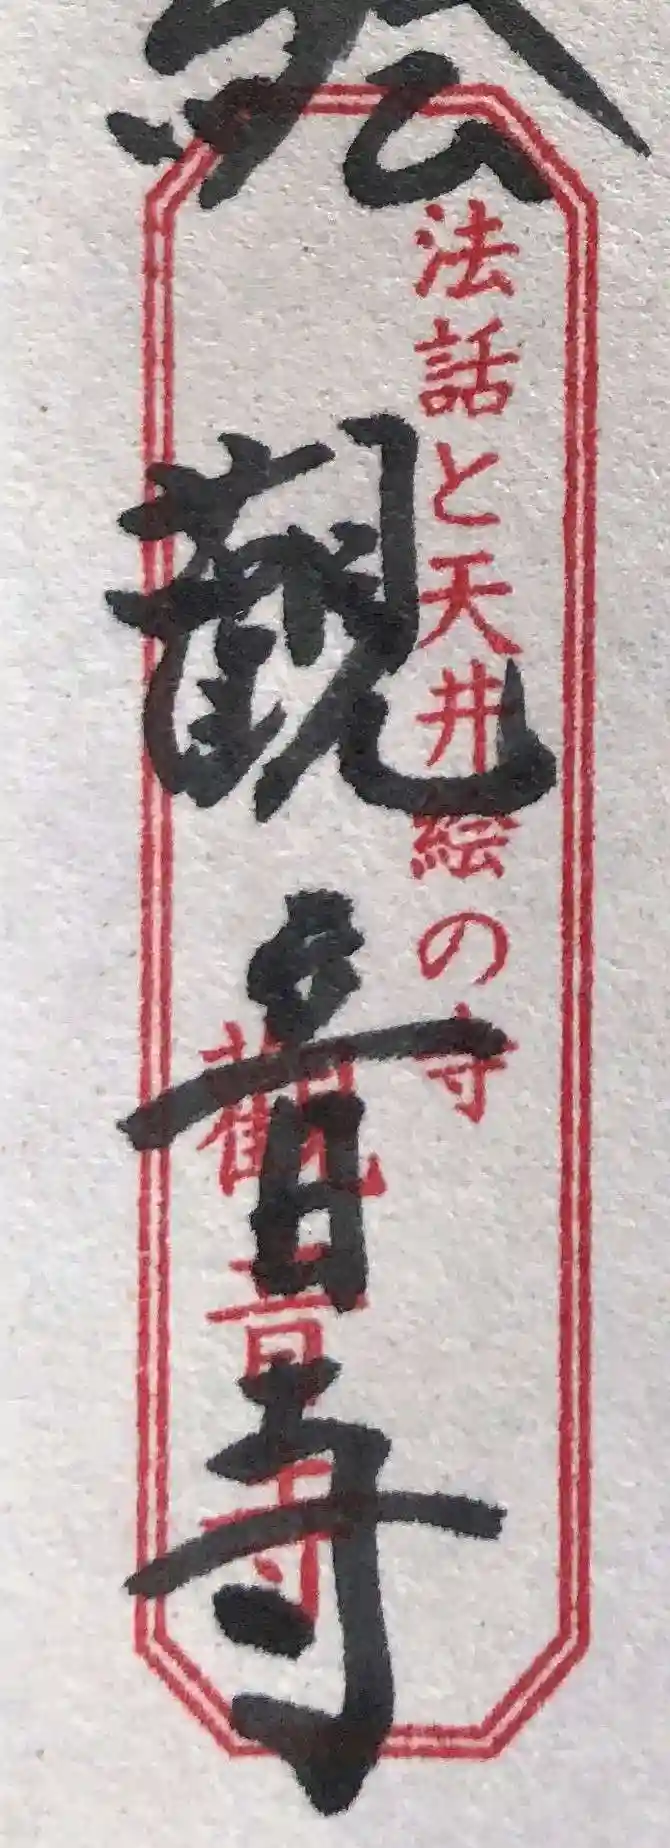 絵
法話と天井絵の寺
觀音寺
觀音寺